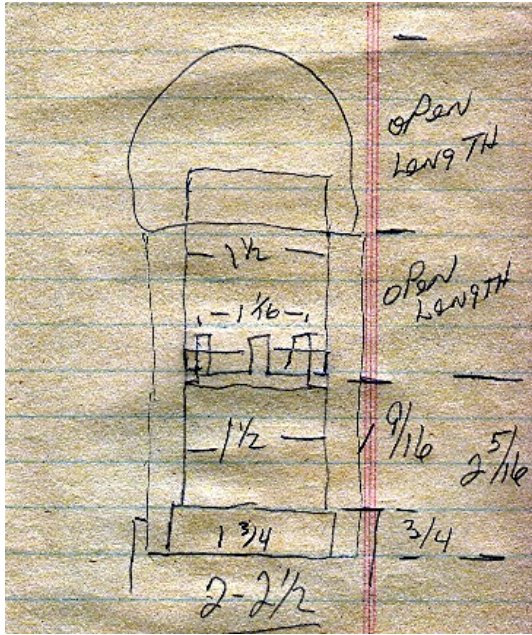 OPEN
LENGTH
1 1/2
1 1/16
OPEN
LENGTH
1 1/2
9/16
2 5/16
1 3/4
3/4
2 - 2 1/2